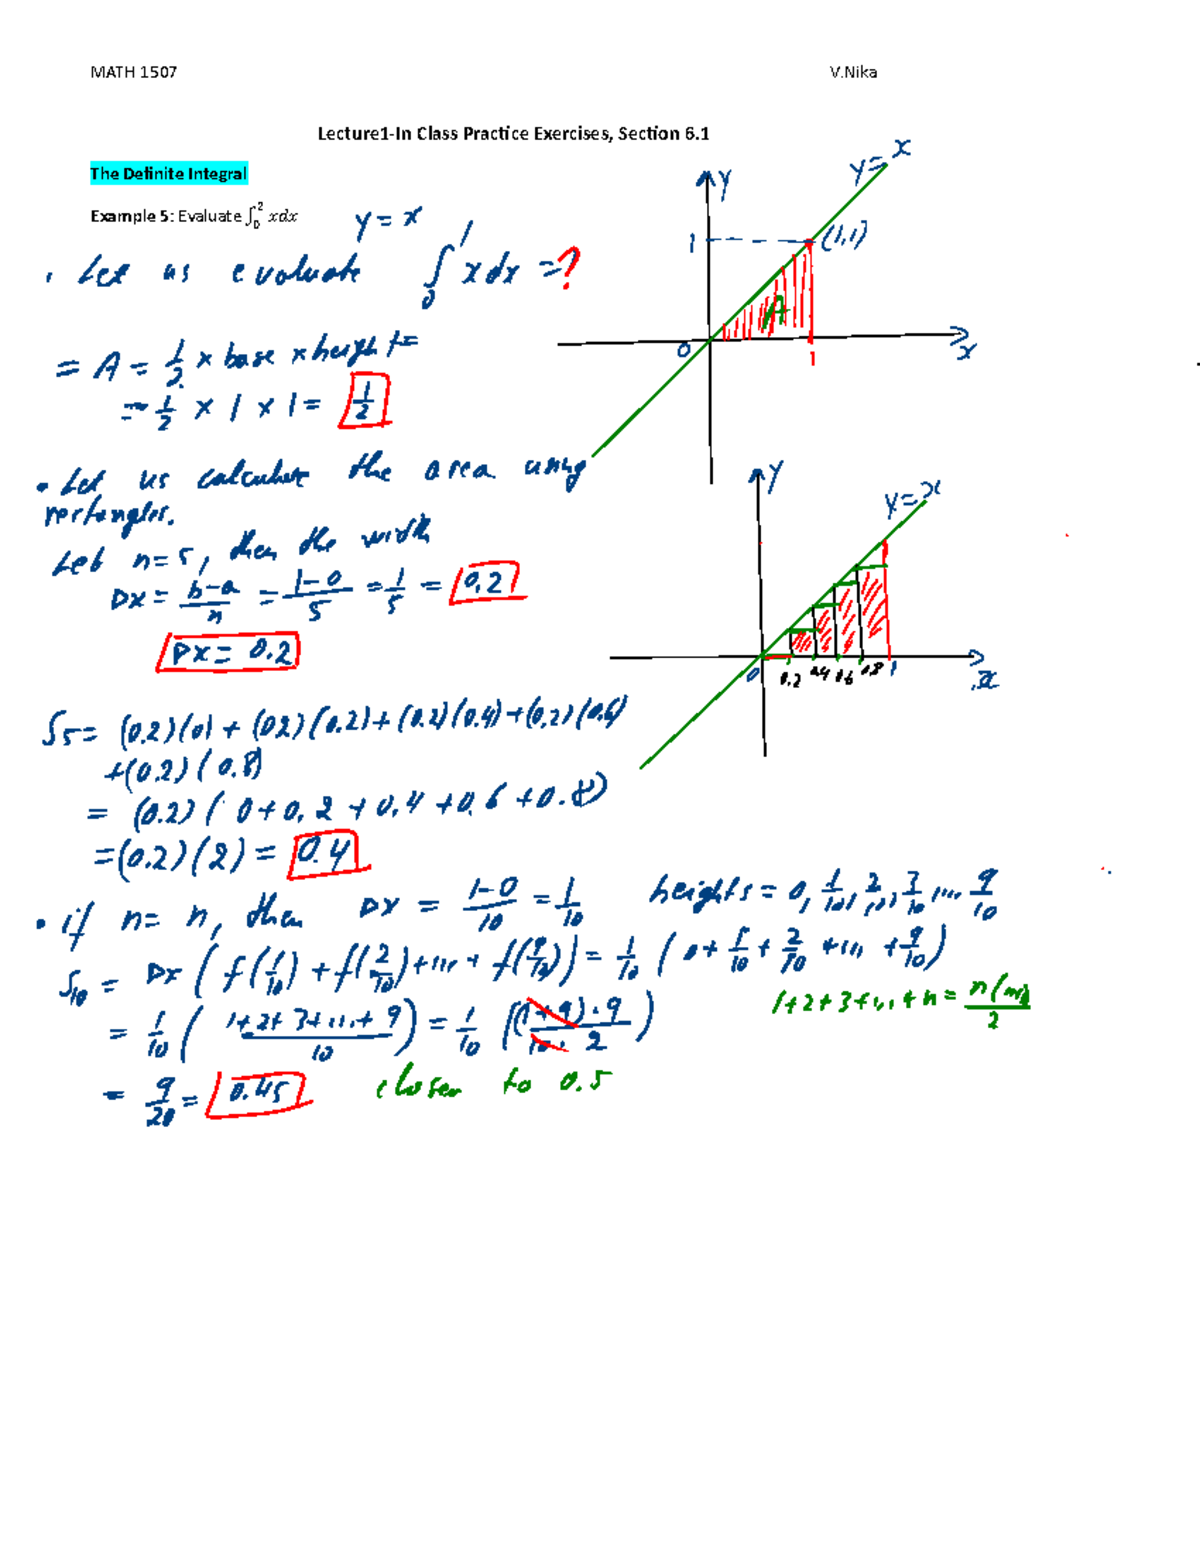 MATH 1507 V.Nika
Lecture1-In Class Practice Exercises, Section 6.1
The Definite Integral
Example 5: Evaluate ∫₀² xdx
y = x
• Let us evaluate ∫₀¹ xdx = ?
= A = 1/2 × base × height =
= 1/2 × 1 × 1 = 1/2
y
y = x
1
(1,1)
A
0
1
x
• Let us calculate the area using
rectangles.
Let n = 5, then the width
Δx = (b-a)/n = (1-0)/5 = 1/5 = 0.2
Δx = 0.2
y
y = x
0 0.2 0.4 0.6 0.8 1
x
S₅ = (0.2)(0) + (0.2)(0.2) + (0.2)(0.4) + (0.2)(0.6)
+(0.2)(0.8)
= (0.2)(0 + 0.2 + 0.4 + 0.6 + 0.8)
= (0.2)(2) = 0.4
• if n = n, then Δx = (1-0)/10 = 1/10 heights = 0, 1/10, 2/10, 3/10, ... 9/10
S₁₀ = Δx (f(1/10) + f(2/10) + ... + f(9/10)) = 1/10 (0 + 1/10 + 2/10 + ... + 9/10)
1+2+3+...+n = n(n+1)/2
= 1/10 ((1+2+3+...+9)/10) = 1/10 (((1+9)·9)/(10·2))
= 9/20 = 0.45 closer to 0.5